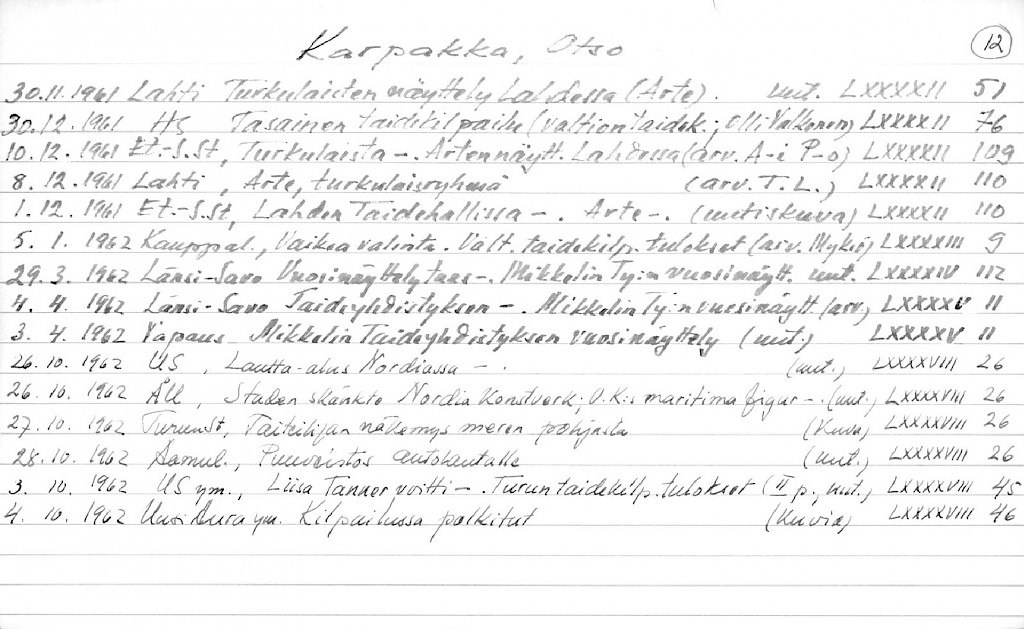 Karpakka, Otso
12
30.11.1961 Lahti Turkulaisten näyttely Lahdessa (Arte). uut. LXXXXII 51
30.12.1961 HS Tasainen taidekilpailu (valtion taidek.; Olli Valkonen) LXXXXII 76
10.12.1961 Et.-S.St, Turkulaista -. Arten näytt. Lahdessa (arv. A-i P-o) LXXXXII 109
8.12.1961 Lahti, Arte, turkulaisryhmä (arv. T.L.) LXXXXII 110
1.12.1961 Et.-S.St, Lahden Taidehallissa -. Arte -. (uutiskuva) LXXXXII 110
5.1.1962 Kauppal., Vaikea valinta. Valt. taidekilp. tulokset (arv. Mykö) LXXXXIII 9
29.3.1962 Länsi-Savo Vuosinäyttely taas -. Mikkelin Ty:n vuosinäytt. uut. LXXXXIV 112
4.4.1962 Länsi-Savo Taideyhdistyksen -. Mikkelin Ty:n vuosinäytt. (arv.) LXXXXV 11
3.4.1962 Vapaus Mikkelin Taideyhdistyksen vuosinäyttely (uut.) LXXXXV 11
26.10.1962 US, Lautta-alus Nordiassa -. (uut.) LXXXXVIII 26
26.10.1962 ÅU, Staden skänkte Nordia Konstverk; O.K:s maritima figur -. (uut.) LXXXXVIII 26
27.10.1962 TurunSt, Taiteilijan näkemys meren pohjasta (Kuva) LXXXXVIII 26
28.10.1962 Aamul., Puuveistos autolautalle (uut.) LXXXXVIII 26
3.10.1962 US ym., Liisa Tanner voitti -. Turun taidekilp. tulokset (II p., uut.) LXXXXVIII 45
4.10.1962 Uusi Aura ym. Kilpailussa palkitut (Kuvia) LXXXXVIII 46